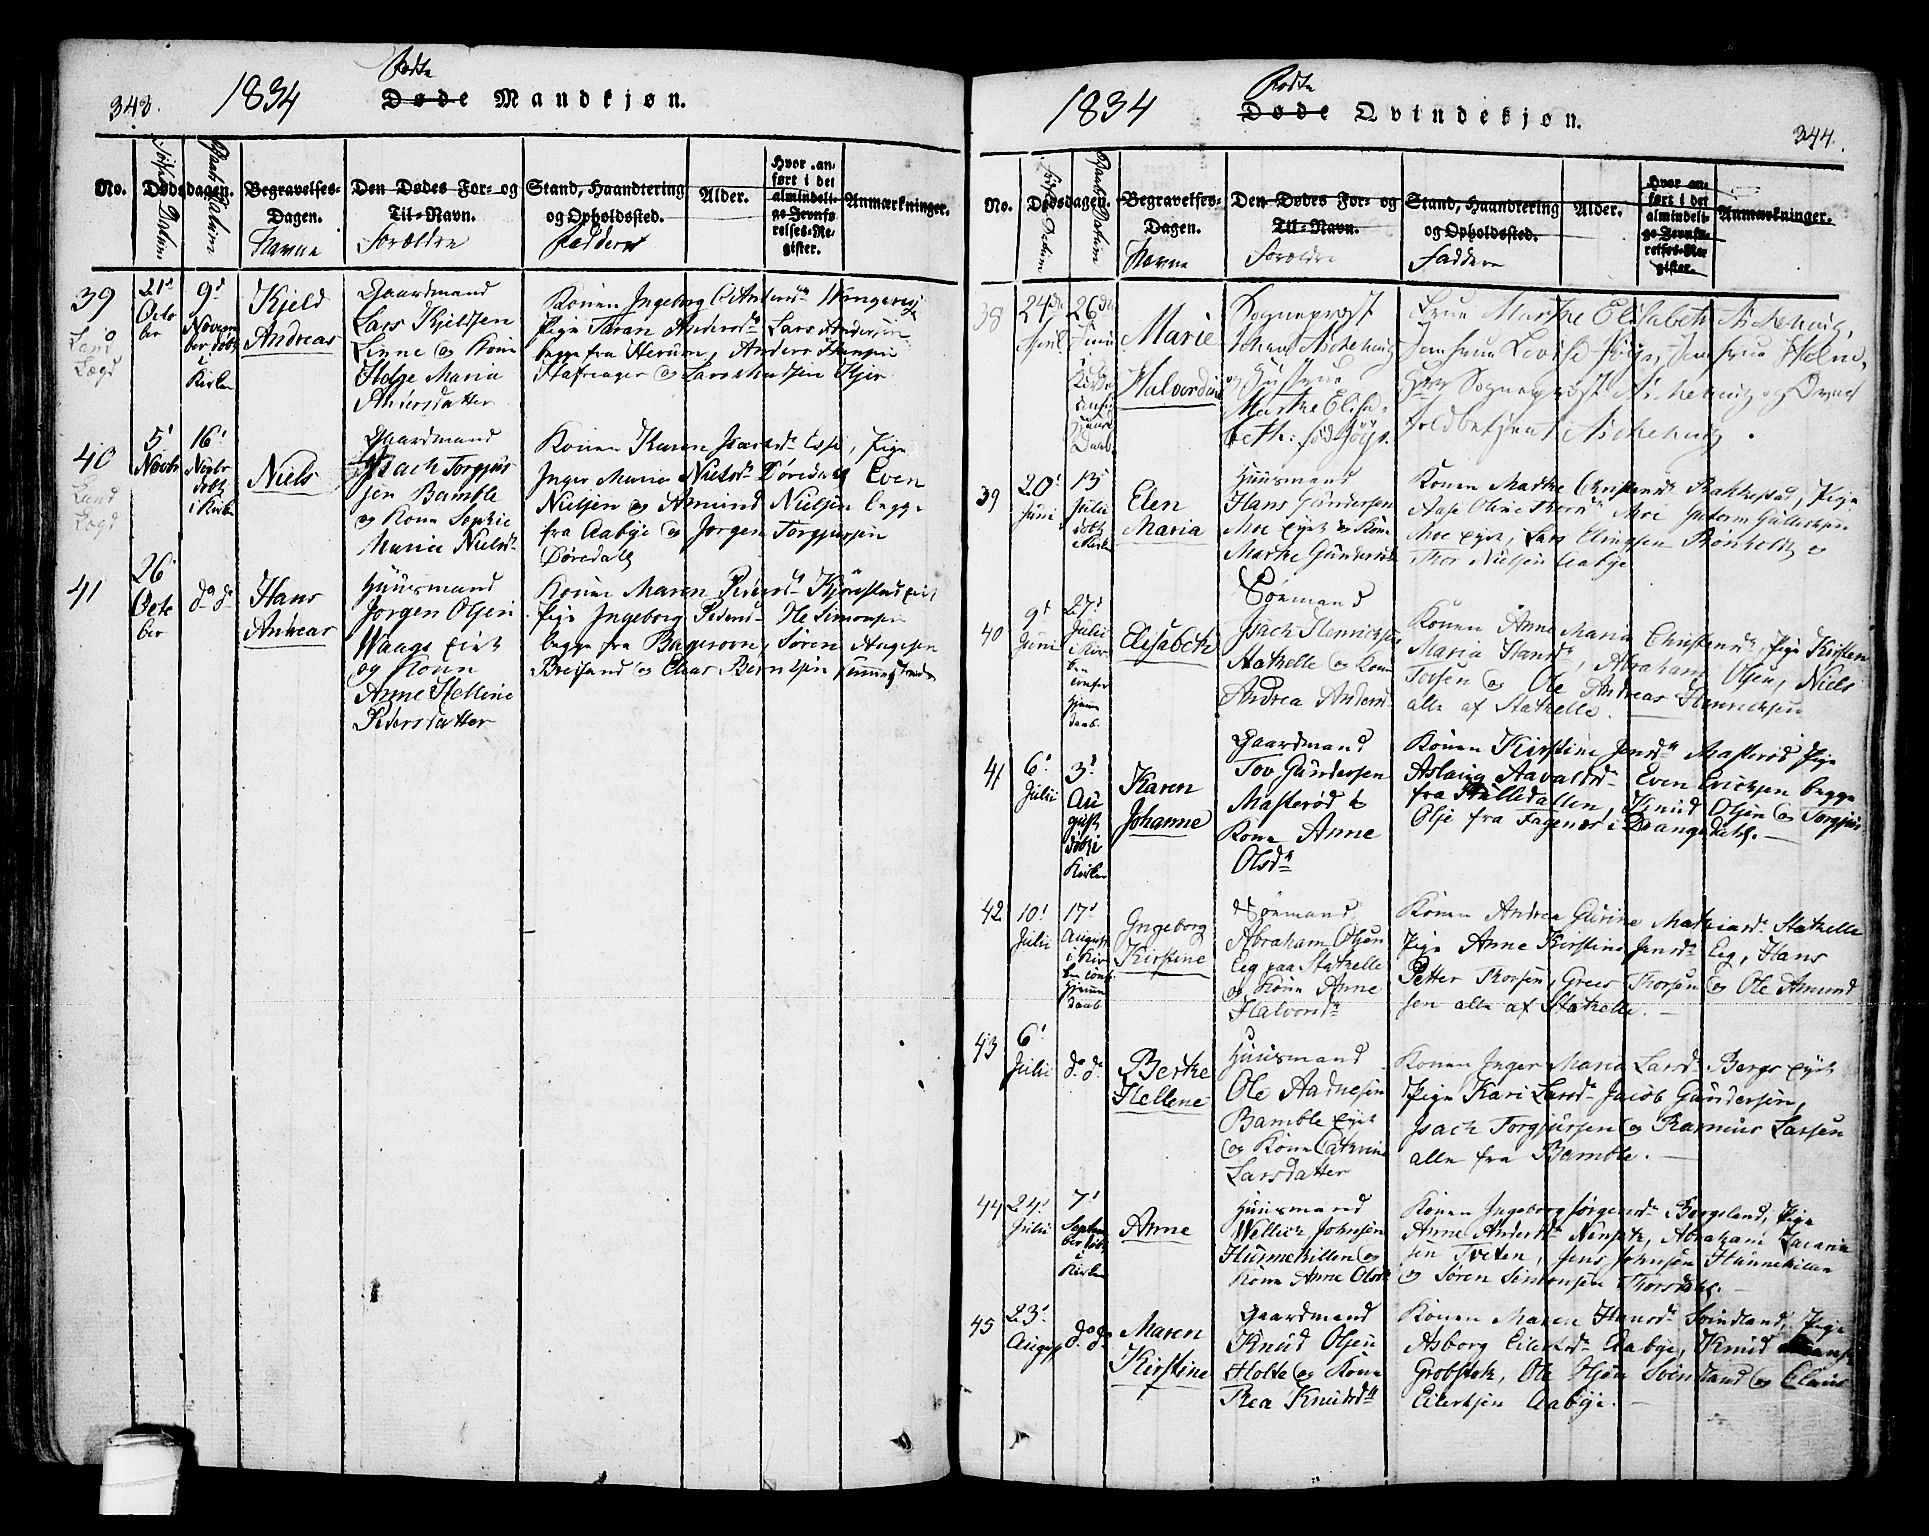 343.
1834
Fødte
Døde Mandkjøn.
No.
Dødsdagen.
Fødsels Datum
Daabs Datum
Begravelses-
Dagen.
Navne
Den Dødes For- og
Til-Navn.
Forældre
Stand, Haandtering
og Opholdssted.
Faddere
Alder.
Hvor an-
ført i det
almindeli-
ge Jevnfø-
relses-Re-
gister.
Anmærkninger.
39
Land
Lægd
21d
Octo
ber
9d
Novem
ber døbt
i
Kirken
Kjeld
Andreas
Gaardmand
Lars Kjeldsen
Linne og Kone
Helge Maria
Andersdatter
Konen Ingeborg Andersd.
Pige Taran Andersd. Lars Andersen
begge fra Herum, Anders Hansen
40
Land
Lægd
5d
Novbr
16d
Novbr
døbt
i Kirken
Niels
Gaardmand
Isach Torgjus
sen Bamble
og Kone Sophie
Maria Nielsd.
Konen Karen Isacsd. Pige
Inger Maria Nielsd. Døredall Even
Nielsen og Amund Nielsen begge
fra Aabye og Jørgen Torgjussen
Døredall
41
26d
Octo
ber
do do
Hans
Andreas
Huusmand
Jørgen Olsen
Waags Eiet
og Konen
Anne Helline
Pedersdatter
Konen Maren Pedersd. Kjørstad Eiet
Pige Ingeborg Pedersd. Ole Simonsen
begge fra Søren Aagesen
og Claus Berntsen
1834
Fødte
Døde Qvindekjøn.
344.
No.
Dødsdagen.
Fødsels Datum
Daabs Datum
Begravelses-
Dagen.
Navne
Den Dødes For- og
Til-Navn.
Forældre
Stand, Haandtering
og Opholdssted.
Faddere
Alder.
Hvor an-
ført i det
almindeli-
ge Jevnfø-
relses-Re-
gister.
Anmærkninger.
38
24de
April
26de
Juni
i
Kirken
Hjemme
Daab
Marie
Halvordine
Sogneprest
Johan Aschehoug
og Hustrue
Marthe Elisa-
beth: fød
Fruen Marthe Elisabeth Aschehoug,
Jomfrue Lovise Jomfrue Holm,
Herr Sogneprest Aschehoug og
Aschehoug.
39
20d
Juni
13d
Julii
døbt
Kirken
Elen
Maria
Huusmand
Hans Gundersen
Moe Eyet og Kone
Marthe Gundersd.
Konen Marthe Christensd. Rakkestad, Pige
Aase Oline Thorsd. Moe Gutorm Gullichsen
Moe Eyet, Lars Ellingsen Rønholdt og
Thor Nielsen Aabye
40
9d
Juni
27d
Julii
i Kir
ken
confir
hjemme
daab
Elisabeth
Sømand
Isach Henrichsen
Stathelle og Kone
Andrea Andersd.
Konen Anne Maria Christensd., Pige Kirsten
Maria Hansd., Abraham Olsen, Niels
Torsen og Ole Andreas Henrichsen
alle af Stathelle.
41
6d
Julii
3d
Au
gust
døbt i
Kirken
Karen
Johanne
Gaardmand
Tov Gundersen
Masterød &
Kone Anne
Olsd.
Konen Kirstine Jensd. Masterød Pige
Aslaug Aavaldsd. Even Ericksen begge
fra Hulledallen, Knud Olsen og Torgjus
Olse fra Fagernes i Drangedahl.
42
10d
Julii
17d
August
i Kir
ken conf
hjemme
daab
Ingeborg
Kirstine
Sømand
Abraham Olsen
Eeg paa Stathelle
og Kone Anne
Halvorsd.
Konen Andrea Gurine Mathiasd. Stathelle
Pige Anne Kirstine Jensd. Eeg, Hans
Petter Thorsen, Grees Thorsen og Ole Amund
sen alle af Stathelle.
43
6d
Julii
do do
Berthe
Hellene
Huusmand
Ole Aadnesen
Bamble Eyet
og Kone Cathrine
Larsdatter
Konen Inger Maria Larsd. Bergs Eyet
Pige Kari Larsd. Jacob Gundersen,
Isach Torgjussen og Rasmus Larsen
alle fra Bamble.
44
24d
Julii
7d
Septem
ber døbt
i
Kirken
Anne
Huusmand
Wellick Johnsen
Hunnekillen og
Kone Anne Olsd.
Konen Ingeborg Jørgensd. Borgeland, Pige
Anne Andersd. Abraham Zacaria
sen Tveten, Jens Johnsen Hunnekillen
og Søren Simonsen Thorsdahl.
45
23d
August
do do
Maren
Kirstine
Gaardmand
Knud Olsen
Holte og Kone
Rea Knudsd.
Konen Maren Hansd. Svindland, Pige
Asborg Eilertsd. Aabye, Knud
Grobstok, Ole Olsen Svinland og Claus
Eilertsen Aabye.